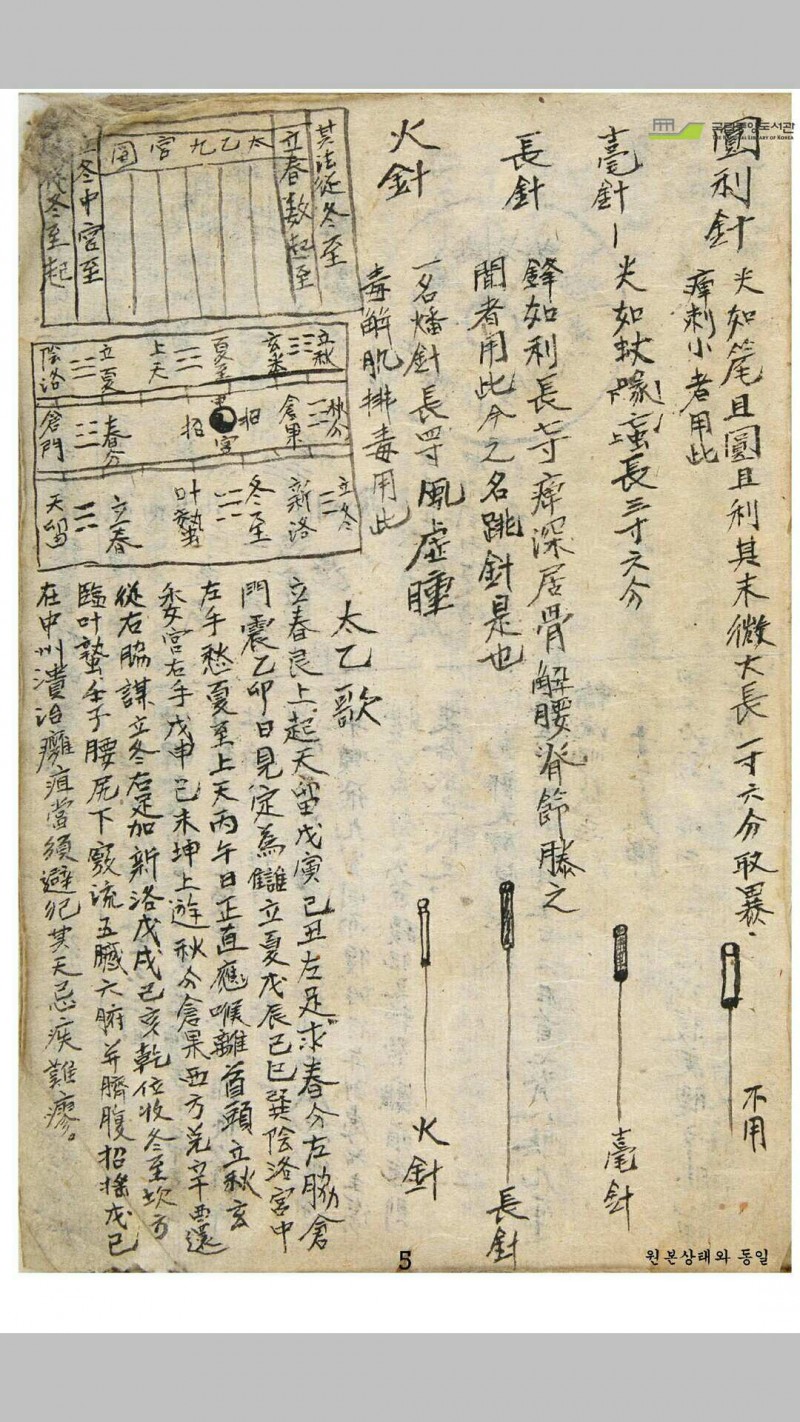 圓利針
尖如氂且圓且利其末微大長一寸六分取暴
痺刺小者用此
不用
毫針
尖如蚊
喙長三寸六分
毫針
長針
鋒如利長七寸痺深居骨解腰脊節腠之
間者用此今之名跳針是也
長針
火針
一名燔針長四寸風虛腫
毒解肌排毒用此
火針
其法從冬至
立春數起至
太乙九宮圖
立冬中宮至
冬至起
立秋 玄委 夏至 上天 立夏 陰洛
秋分 倉果 招 宮 招 春分 倉門
立冬 新洛 冬至 叶蟄 立春 天留
太乙歌
立春艮上起天留戊寅己丑左足求春分左脇倉
門震乙卯日見定為讎立夏戊辰己巳巽陰洛宮中
左手愁夏至上天丙午日正直應喉離首頭立秋玄
委宮右手戊申己未坤上遊秋分倉果西方兌辛酉還
從右脇謀立冬右足加新洛戊戌己亥乾位收冬至坎方
臨叶蟄壬子腰尻下竅流五臟六腑并臍腹招搖戊己
在中州潰治癰疽當須避犯其天忌疾難瘳。
5
국립중앙도서관
THE NATIONAL LIBRARY OF KOREA
원본상태와 동일